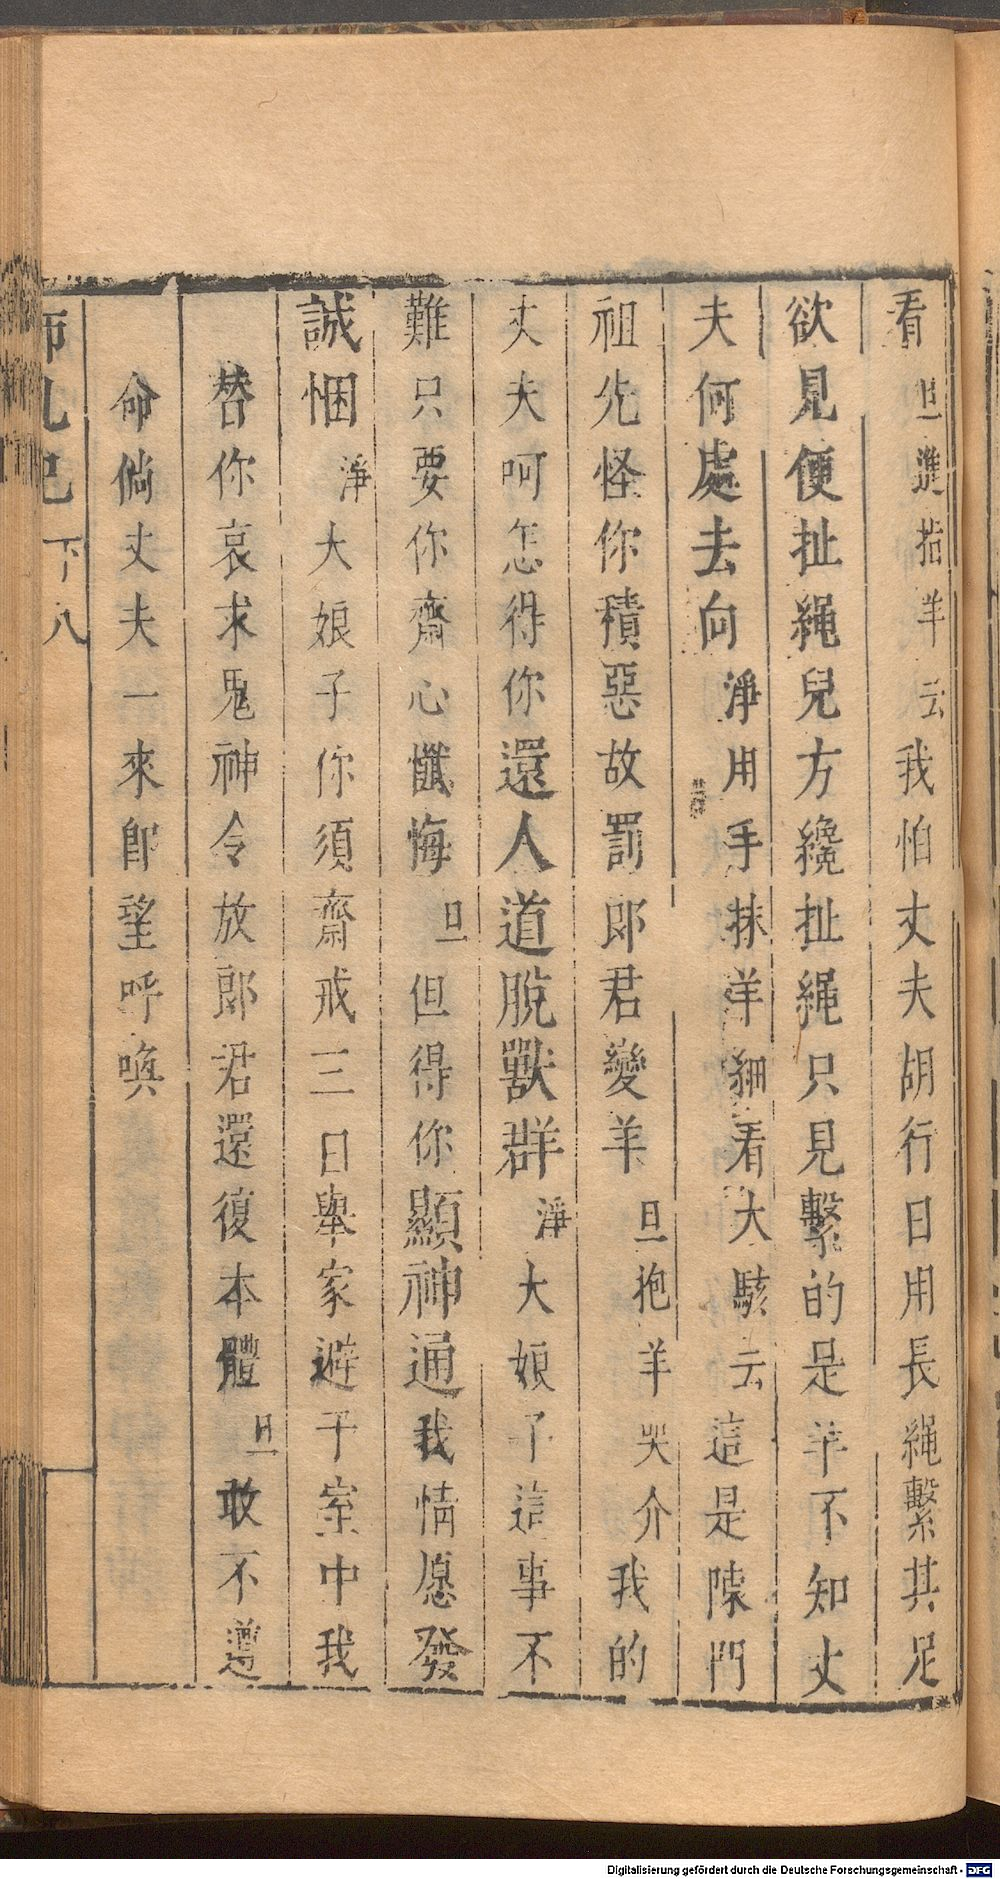 看旦進指羊云我怕丈夫胡行日用長繩繫其足
欲見便扯繩兒方纔扯繩只見繫的是羊不知丈
夫何處去向淨用手抹羊細看大駭云這是陳門
祖先怪你積惡故罰郎君變羊旦抱羊哭介我的
丈夫呵怎得你還人道脫獸群淨大娘子這事不
難只要你齋心懺悔旦但得你顯神通我情愿發
誠悃淨大娘子你須齋戒三日舉家避于室中我
替你哀求鬼神令放郎君還復本體旦敢不遵
命倘丈夫一來即望呼喚
師孔巳 下 八
Digitalisierung gefördert durch die Deutsche Forschungsgemeinschaft - DFG